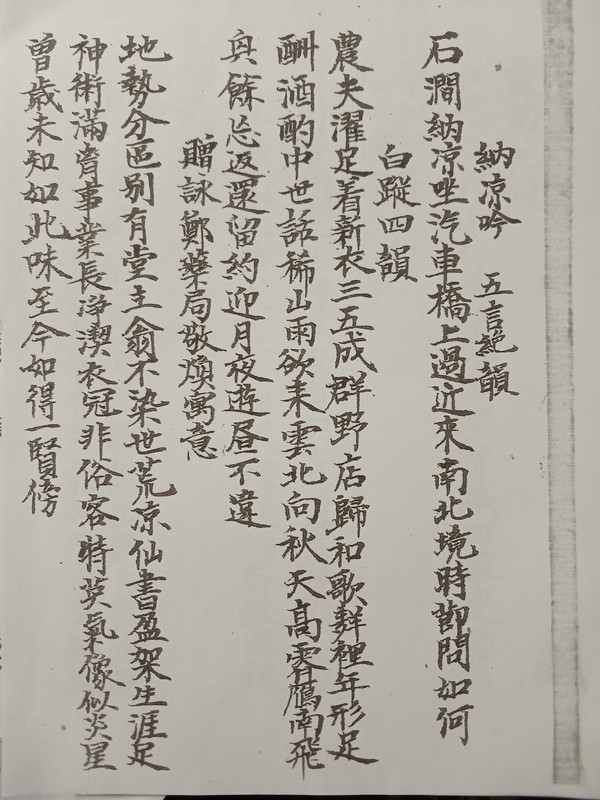 納凉吟 五言絶韻
石澗納凉坐汽車橋上過近来南北境時卽問如何
白蹤四韻
農夫濯足着新衣三五成群野店歸和歌群裡年形足
酬酒酌中世話稀山雨欲来雲北向秋天高霽鴈南飛
興餘忘返還留約迎月夜遊昼不違
贈詠鄭藥局敬煥寓意
地勢分區别有堂主翁不染世荒凉仙書盈架生涯足
神術滿脊事業長浄潔衣冠非俗客特英氣像似炎星
曽歲未知如此味至今如得一賢傍